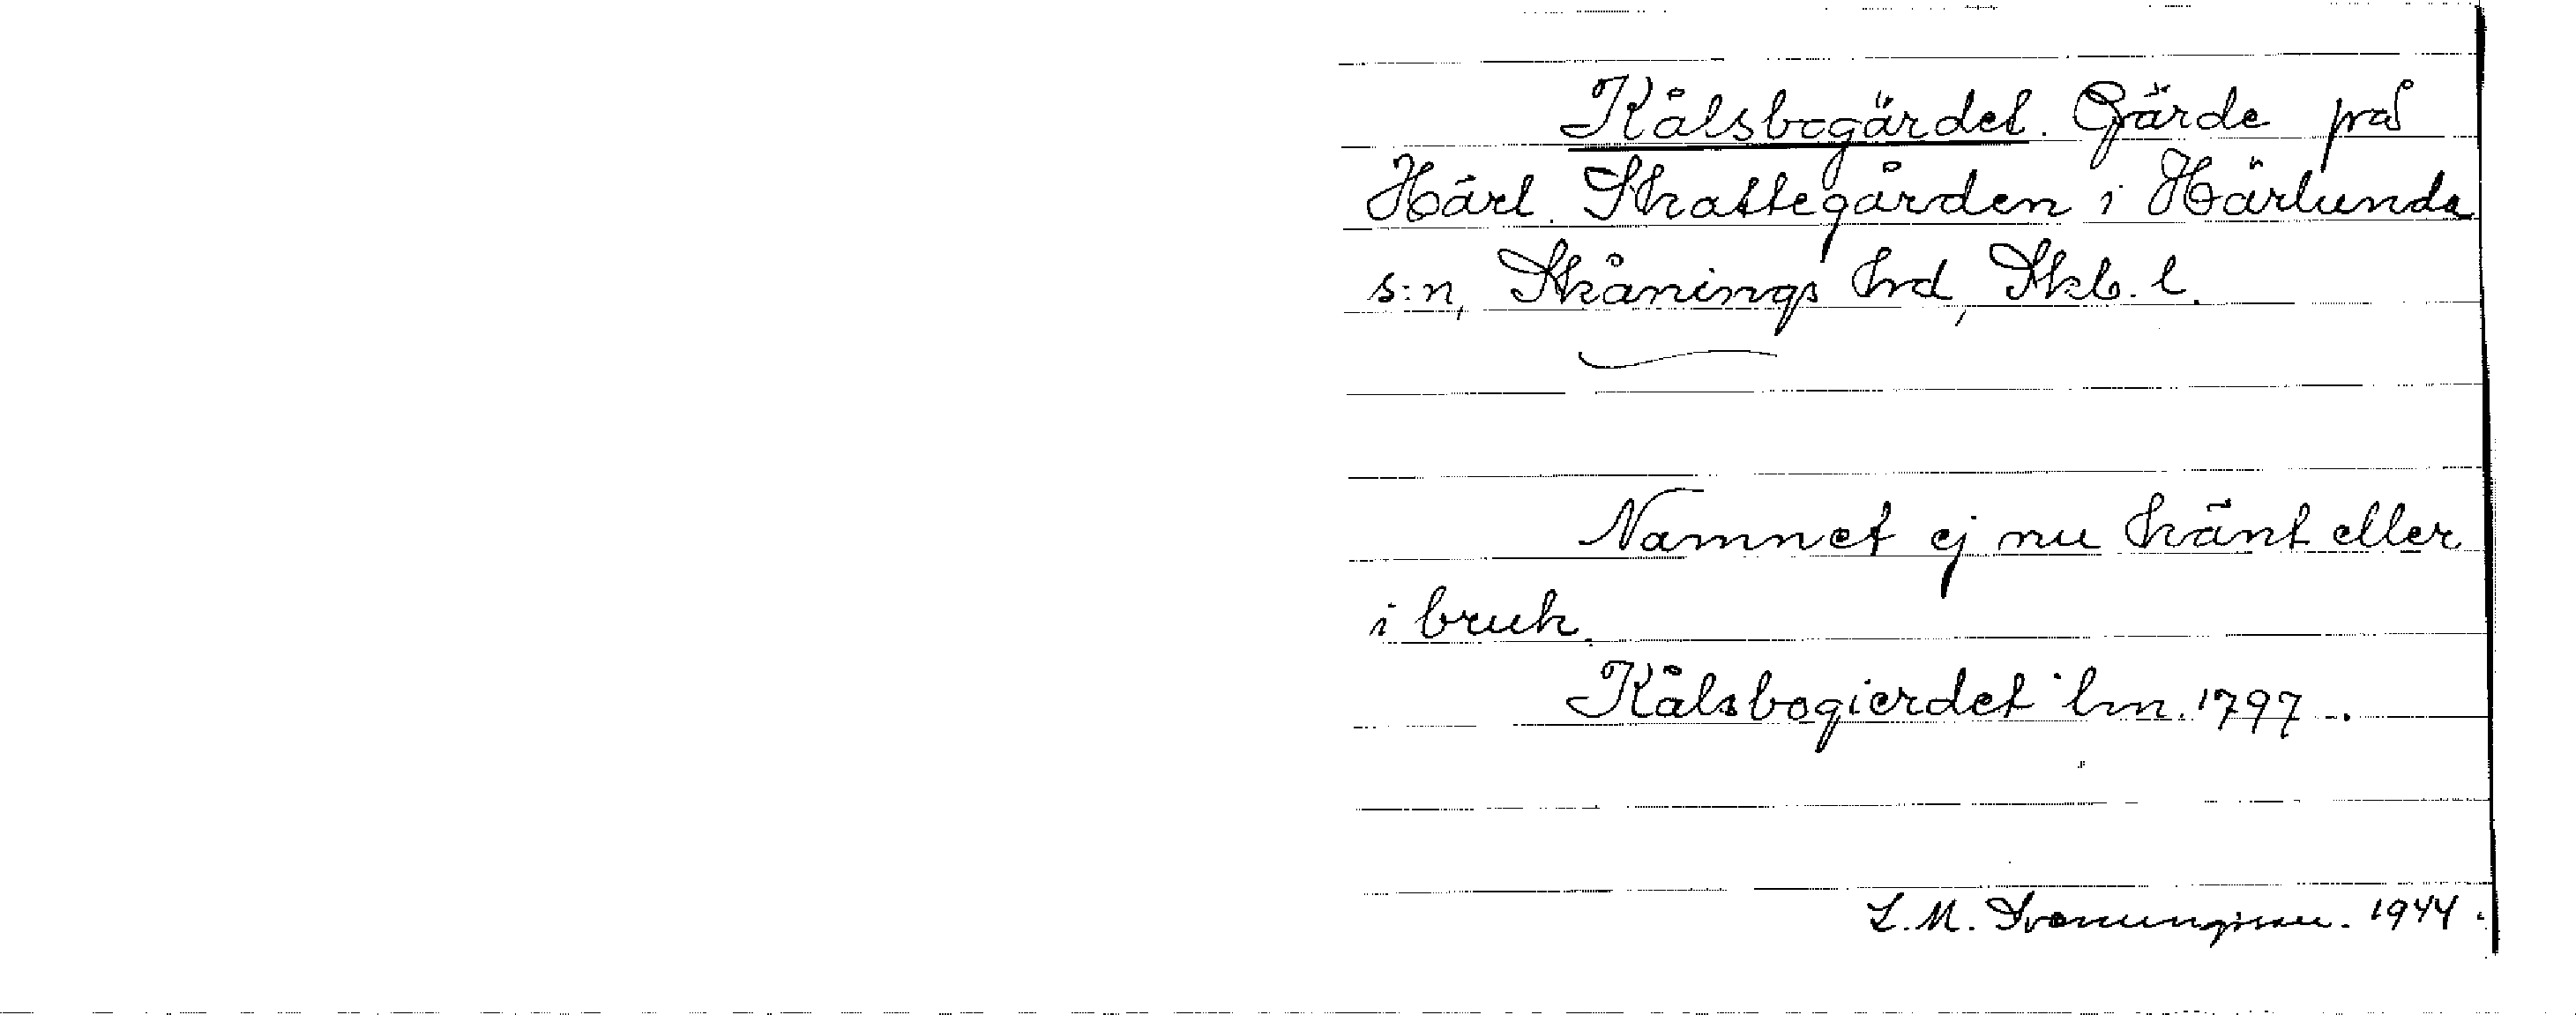 Kålsbogärdet. Gärde på
Härl. Skattegården i Härlunda
s:n, Skånings hrd, Skb. l.
Namnet ej nu känt eller
i bruk.
Kålsbogierdet lm. 1797.
L.M. Svenungsson. 1944.